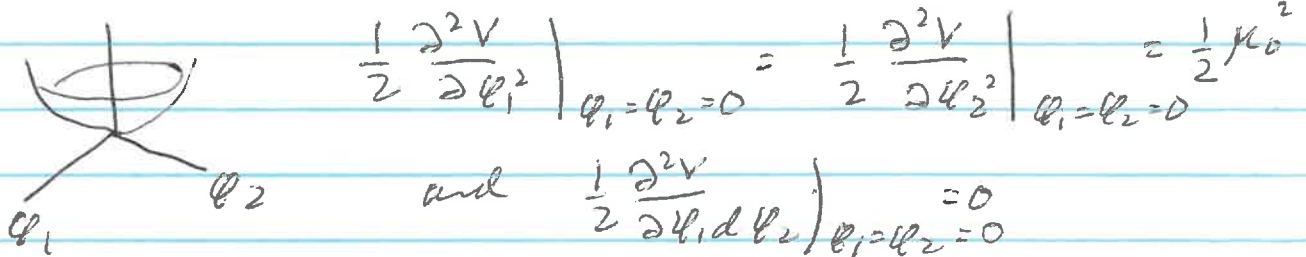 \frac{1}{2} \frac{\partial^2 V}{\partial \varphi_1^2} \Big|_{\varphi_1 = \varphi_2 = 0} = \frac{1}{2} \frac{\partial^2 V}{\partial \varphi_2^2} \Big|_{\varphi_1 = \varphi_2 = 0} = \frac{1}{2} \mu_0^2
φ_2
and \frac{1}{2} \frac{\partial^2 V}{\partial \varphi_1 d \varphi_2} \Big|_{\varphi_1 = \varphi_2 = 0} = 0
φ_1